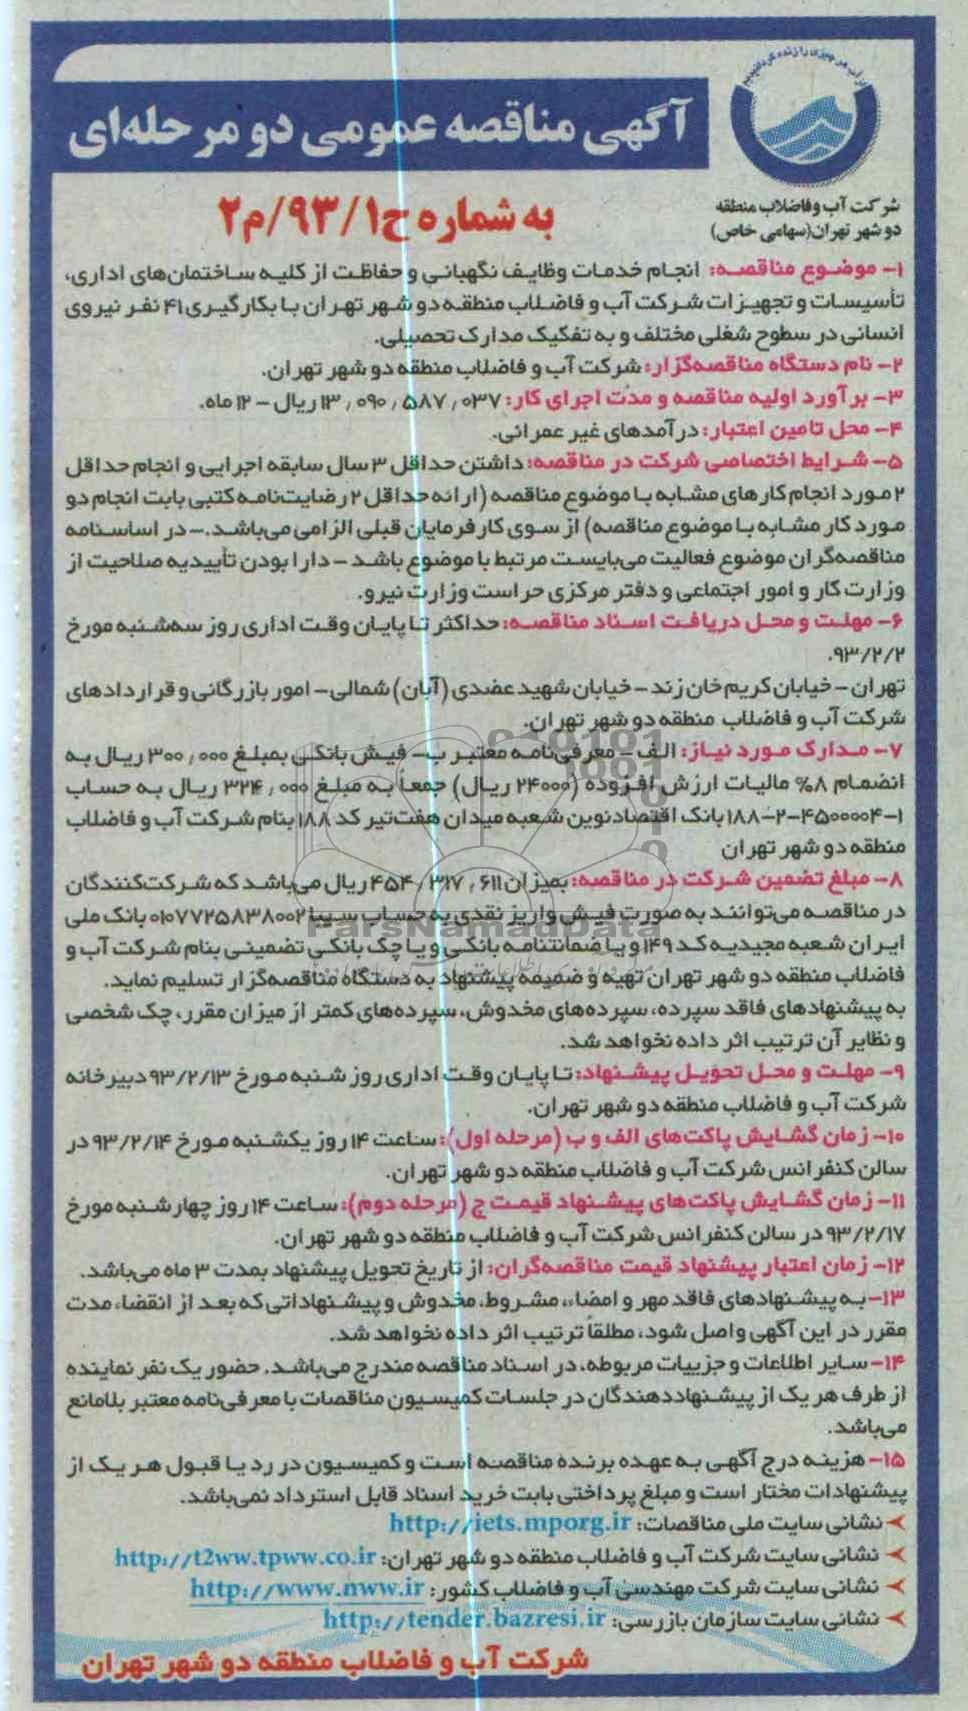 از آب هر چیزی را زنده گردانیدیم
آگهی مناقصه عمومی دو مرحله‌ای
شرکت آب و فاضلاب منطقه
دو شهر تهران(سهامی خاص)
به شماره ح۹۳/۱/م۲
۱- موضوع مناقصه: انجام خدمات وظایف نگهبانی و حفاظت از کلیه ساختمان‌های اداری،
تأسیسات و تجهیزات شرکت آب و فاضلاب منطقه دو شهر تهران با بکارگیری ۴۱ نفر نیروی
انسانی در سطوح شغلی مختلف و به تفکیک مدارک تحصیلی.
۲- نام دستگاه مناقصه‌گزار: شرکت آب و فاضلاب منطقه دو شهر تهران.
۳- برآورد اولیه مناقصه و مدت اجرای کار: ۱۳,۰۹۰,۵۸۷,۰۳۷ ریال - ۱۲ ماه.
۴- محل تامین اعتبار: درآمدهای غیر عمرانی.
۵- شرایط اختصاصی شرکت در مناقصه: داشتن حداقل ۳ سال سابقه اجرایی و انجام حداقل
۲ مورد انجام کارهای مشابه با موضوع مناقصه (ارائه حداقل ۲ رضایت‌نامه کتبی بابت انجام دو
مورد کار مشابه با موضوع مناقصه) از سوی کارفرمایان قبلی الزامی می‌باشد.- در اساسنامه
مناقصه‌گران موضوع فعالیت می‌بایست مرتبط با موضوع باشد - دارا بودن تأییدیه صلاحیت از
وزارت کار و امور اجتماعی و دفتر مرکزی حراست وزارت نیرو.
۶- مهلت و محل دریافت اسناد مناقصه: حداکثر تا پایان وقت اداری روز سه‌شنبه مورخ
۹۳/۲/۲.
تهران - خیابان کریم خان زند - خیابان شهید عضدی (آبان) شمالی - امور بازرگانی و قراردادهای
شرکت آب و فاضلاب منطقه دو شهر تهران.
۷- مدارک مورد نیاز: الف - معرفی‌نامه معتبر ب- فیش بانکی بمبلغ ۳۰۰,۰۰۰ ریال به
انضمام ۸% مالیات ارزش افزوده (۲۴۰۰۰ ریال) جمعاً به مبلغ ۳۲۴,۰۰۰ ریال به حساب
۱-۴۵۰۰۰۰۴-۲-۱۸۸ بانک اقتصادنوین شعبه میدان هفت‌تیر کد ۱۸۸ بنام شرکت آب و فاضلاب
منطقه دو شهر تهران
۸- مبلغ تضمین شرکت در مناقصه: بمیزان ۴۵۴,۳۱۷,۶۱۱ ریال می‌باشد که شرکت‌کنندگان
در مناقصه می‌توانند به صورت فیش واریز نقدی به حساب سیبا ۰۱۰۷۷۲۵۸۳۸۰۰۲ بانک ملی
ایران شعبه مجیدیه کد ۱۴۹ و یا ضمانتنامه بانکی و یا چک بانکی تضمینی بنام شرکت آب و
فاضلاب منطقه دو شهر تهران تهیه و ضمیمه پیشنهاد به دستگاه مناقصه‌گزار تسلیم نماید.
به پیشنهادهای فاقد سپرده، سپرده‌های مخدوش، سپرده‌های کمتر از میزان مقرر، چک شخصی
و نظایر آن ترتیب اثر داده نخواهد شد.
۹- مهلت و محل تحویل پیشنهاد: تا پایان وقت اداری روز شنبه مورخ ۹۳/۲/۱۳ دبیرخانه
شرکت آب و فاضلاب منطقه دو شهر تهران.
۱۰- زمان گشایش پاکت‌های الف و ب (مرحله اول): ساعت ۱۴ روز یکشنبه مورخ ۹۳/۲/۱۴ در
سالن کنفرانس شرکت آب و فاضلاب منطقه دو شهر تهران.
۱۱- زمان گشایش پاکت‌های پیشنهاد قیمت ج (مرحله دوم): ساعت ۱۴ روز چهارشنبه مورخ
۹۳/۲/۱۷ در سالن کنفرانس شرکت آب و فاضلاب منطقه دو شهر تهران.
۱۲- زمان اعتبار پیشنهاد قیمت مناقصه‌گران: از تاریخ تحویل پیشنهاد بمدت ۳ ماه می‌باشد.
۱۳- به پیشنهادهای فاقد مهر و امضاء، مشروط، مخدوش و پیشنهاداتی که بعد از انقضاء مدت
مقرر در این آگهی واصل شود، مطلقاً ترتیب اثر داده نخواهد شد.
۱۴- سایر اطلاعات و جزییات مربوطه، در اسناد مناقصه مندرج می‌باشد. حضور یک نفر نماینده
از طرف هر یک از پیشنهاددهندگان در جلسات کمیسیون مناقصات با معرفی‌نامه معتبر بلامانع
می‌باشد.
۱۵- هزینه درج آگهی به عهده برنده مناقصه است و کمیسیون در رد یا قبول هر یک از
پیشنهادات مختار است و مبلغ پرداختی بابت خرید اسناد قابل استرداد نمی‌باشد.
➢ نشانی سایت ملی مناقصات: http://iets.mporg.ir
➢ نشانی سایت شرکت آب و فاضلاب منطقه دو شهر تهران: http://t2ww.tpww.co.ir
➢ نشانی سایت شرکت مهندسی آب و فاضلاب کشور: http://www.nww.ir
➢ نشانی سایت سازمان بازرسی: http://tender.bazresi.ir
شرکت آب و فاضلاب منطقه دو شهر تهران
ParsNamadData